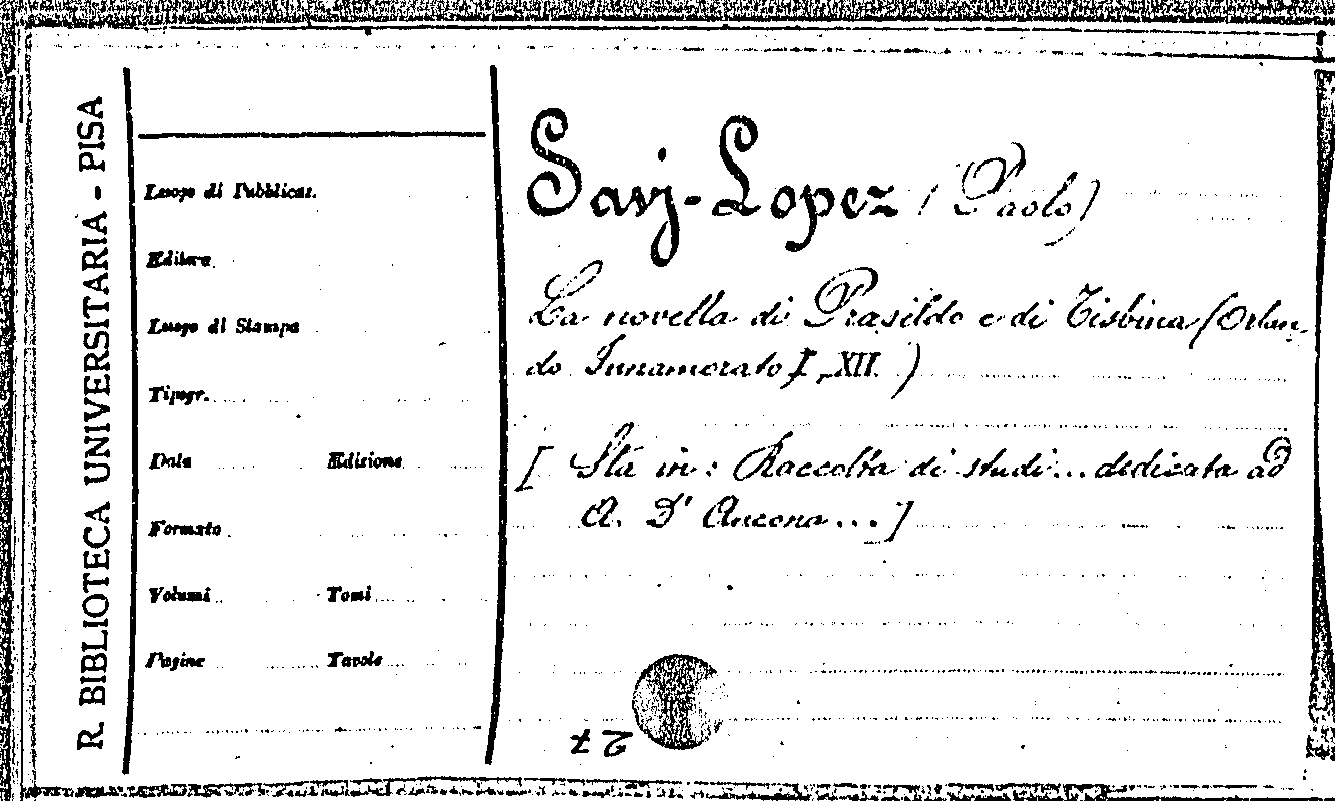 R. BIBLIOTECA UNIVERSITARIA - PISA
Luogo di Pubblicaz.
Editore
Luogo di Stampa
Tipogr.
Data Edizione
Formato
Volumi Tomi
Pagine Tavole
Savj-Lopez (Paolo)
La novella di Prasildo e di Tisbina (Orlan-
do Innamorato, I, XII.)
[Sta in: Raccolta di studi... dedicata ad
A. D'Ancona...]
27